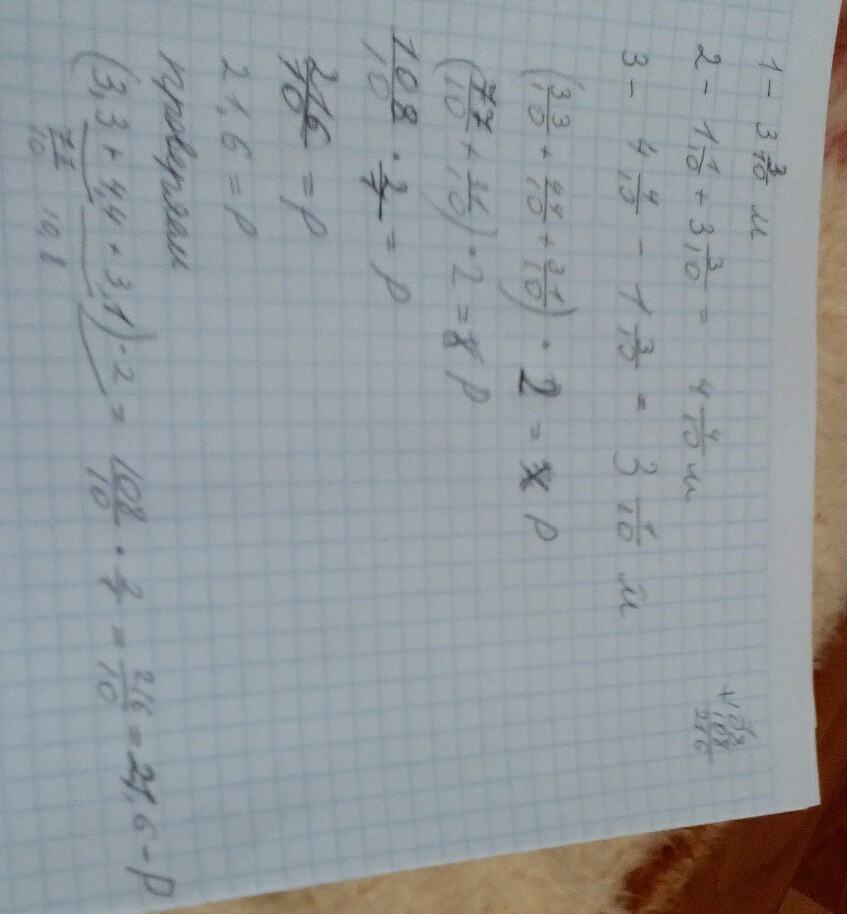 1 - 3 3/10 м
2 - 1 1/10 + 3 3/10 = 4 4/10 м
3 - 4 4/10 - 1 3/10 = 3 1/10 м
(33/10 + 44/10 + 31/10) · 2 = P
(77/10 + 31/10) · 2 = P
108/10 · 2/1 = P
216/10 = P
21,6 = P
проверяем
(3,3 + 4,4 + 3,1) · 2 = 108/10 · 2/1 = 216/10 = 21,6 - P
77/10 10,8
+ 108
108
216